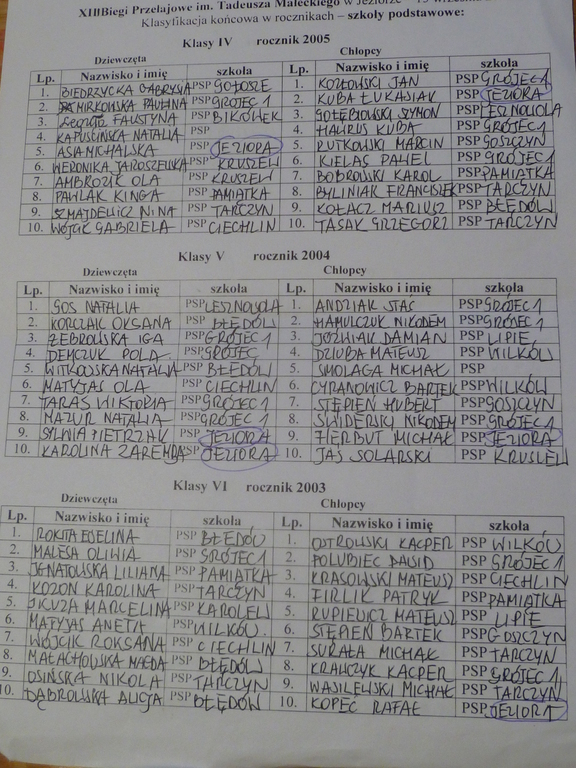 XIII Biegi Przełajowe im. Tadeusza Małeckiego w Jeziorze
Klasyfikacja końcowa w rocznikach – szkoły podstawowe:
Klasy IV rocznik 2005
Dziewczęta Chłopcy
Lp. Nazwisko i imię szkoła Lp. Nazwisko i imię szkoła
1. BIEDRZYCKA GABRYSIA PSP GOŁOSZE 1. KOZŁOWSKI JAN PSP GRÓJEC 1
2. MIRKOWSKA PAULINA PSP GRÓJEC 1 2. KUBA ŁUKASIAK PSP JEZIORA
3. FAUSTYNA PSP BIKÓWEK 3. GOŁĘBIOWSKI SZYMON PSP LESZNOWOLA
4. KAPUŚCIŃSKA NATALIA PSP 4. KUBA PSP GRÓJEC 1
5. ASIA MICHALSKA PSP JEZIORA 5. RUTKOWSKI MARCIN PSP GOSZCZYN
6. WERONIKA JAROSZEWSKA PSP KRUSZEW 6. KIELAS PAWEŁ PSP GRÓJEC 1
7. AMBROZIK OLA PSP KRUSZEW 7. BOBROWSKI KAROL PSP PAMIATKA
8. PAWLAK KINGA PSP PAMIĄTKA 8. BYLINIAK FRANCISZEK PSP TARCZYN
9. SZMAJDEWICZ NINA PSP TARCZYN 9. KOŁACZ MARIUSZ PSP BŁĘDÓW
10. WÓJCIK GABRIELA PSP CIECHLIN 10. TASAK GRZEGORZ PSP TARCZYN
Klasy V rocznik 2004
Dziewczęta Chłopcy
Lp. Nazwisko i imię szkoła Lp. Nazwisko i imię szkoła
1. GOS NATALIA PSP LESZNOWOLA 1. ANDZIAK STAŚ PSP GRÓJEC 1
2. KORCZAK OKSANA PSP BŁĘDÓW 2. HAMULCZUK NIKODEM PSP GRÓJEC 1
3. ŻEBROWSKA IGA PSP GRÓJEC 1 3. JÓŹWIAK DAMIAN PSP LIPIE
4. DEMCZUK POLA PSP GRÓJEC 4. DZIUBA MATEUSZ PSP WILKÓW
5. WITKOWSKA NATALIA PSP BŁĘDÓW 5. SMOLAGA MICHAŁ PSP
6. MATYJAS OLA PSP CIECHLIN 6. CYRANOWICZ BARTEK PSP WILKÓW
7. TARAS WIKTORIA PSP GRÓJEC 1 7. STĘPIEŃ HUBERT PSP GOSZCZYN
8. MAZUR NATALIA PSP GRÓJEC 1 8. ŚWIDERSKI NIKODEM PSP GRÓJEC 1
9. SYLWIA PIETRZAK PSP JEZIORA 9. HERBUT MICHAŁ PSP JEZIORA
10. KAROLINA ZAREMBA PSP JEZIORA 10. JAŚ SOLARSKI PSP KRUSZEW
Klasy VI rocznik 2003
Dziewczęta Chłopcy
Lp. Nazwisko i imię szkoła Lp. Nazwisko i imię szkoła
1. ROKITA EWELINA PSP BŁĘDÓW 1. OSTROWSKI KACPER PSP WILKÓW
2. MALESA OLIWIA PSP GRÓJEC 1 2. POŁUBIEC DAWID PSP GRÓJEC 1
3. IGNATOWSKA LILIANA PSP PAMIĄTKA 3. KRASOWSKI MATEUSZ PSP CIECHLIN
4. KOZON KAROLINA PSP TARCZYN 4. FIRLIK PATRYK PSP PAMIĄTKA
5. MARCELINA PSP KAROLEW 5. RUPIEWICZ MATEUSZ PSP LIPIE
6. MATYJAS ANETA PSP WILKÓW. 6. STĘPIEŃ BARTEK PSP GOSZCZYN
7. WÓJCIK ROKSANA PSP CIECHLIN 7. SURAŁA MICHAŁ PSP TARCZYN
8. MAŁACHOWSKA MAGDA PSP BŁĘDÓW 8. KRAWCZYK KACPER PSP GRÓJEC 1
9. OSIŃSKA NIKOLA PSP TARCZYN 9. WASILEWSKI MICHAŁ PSP TARCZYN
10. DĄBROWSKA ALICJA PSP BŁĘDÓW 10. KOPEĆ RAFAŁ PSP JEZIORA